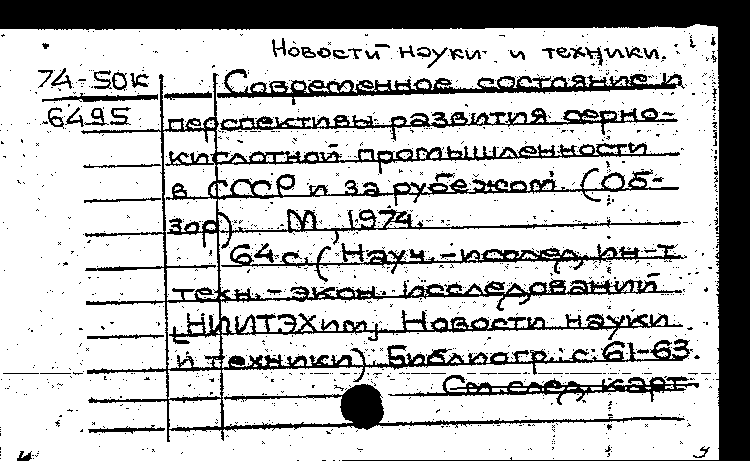 Новости науки и техники.
74-50к Современное состояние и
6495 перспективы развития серно-
кислотной промышленности
в СССР и за рубежом. (Об-
зор). М, 1974.
64 с. (Науч.-исслед. ин-т
техн.-экон. исследований
„НИИТЭХим„ Новости науки
и техники). Библиогр.: с. 61-63.
См. след. карт.